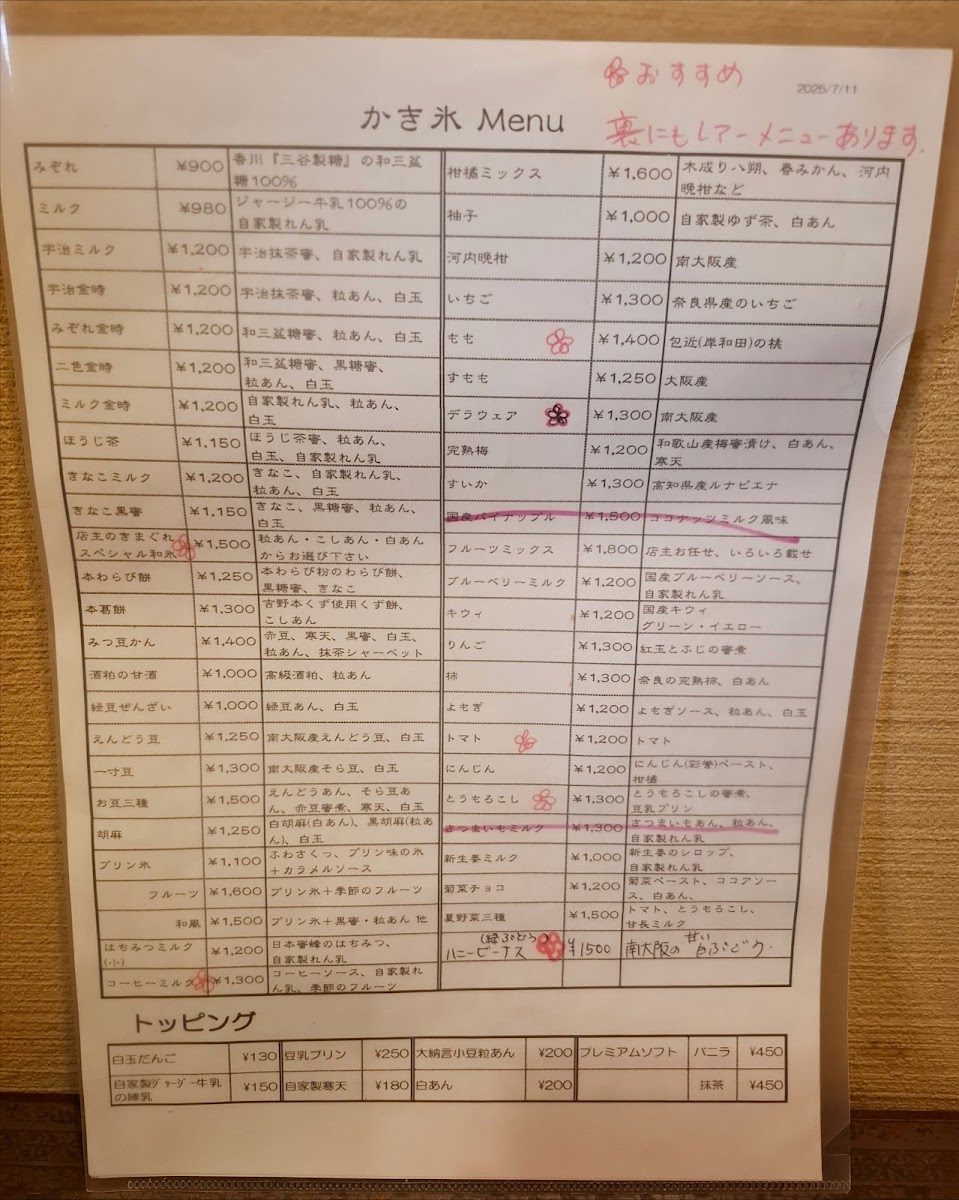 おすすめ
2025/7/11
かき氷 Menu
裏にもレアーメニューあります。
みぞれ ¥900 香川『三谷製糖』の和三盆
糖100%
ミルク ¥980 ジャージー牛乳100%の
自家製れん乳
宇治ミルク ¥1,200 宇治抹茶蜜、自家製れん乳
宇治金時 ¥1,200 宇治抹茶蜜、粒あん、白玉
みぞれ金時 ¥1,200 和三盆糖蜜、粒あん、白玉
二色金時 ¥1,200 和三盆糖蜜、黒糖蜜、
粒あん、白玉
ミルク金時 ¥1,200 自家製れん乳、粒あん、
白玉
ほうじ茶 ¥1,150 ほうじ茶蜜、粒あん、
白玉、自家製れん乳
きなこミルク ¥1,200 きなこ、自家製れん乳、
粒あん、白玉
きなこ黒蜜 ¥1,150 きなこ、黒糖蜜、粒あん、
白玉
店主のきまぐれ
スペシャル和氷 ¥1,500 粒あん・こしあん・白あん
からお選び下さい
本わらび餅 ¥1,250 本わらび粉のわらび餅、
黒糖蜜、きなこ
本葛餅 ¥1,300 吉野本くず使用くず餅、
こしあん
みつ豆かん ¥1,400 赤豆、寒天、黒蜜、白玉、
粒あん、抹茶シャーベット
酒粕の甘酒 ¥1,000 高級酒粕、粒あん
緑豆ぜんざい ¥1,000 緑豆あん、白玉
えんどう豆 ¥1,250 南大阪産えんどう豆、白玉
一寸豆 ¥1,300 南大阪産そら豆、白玉
お豆三種 ¥1,500 えんどうあん、そら豆あ
ん、赤豆蜜煮、寒天、白玉
胡麻 ¥1,250 白胡麻(白あん)、黒胡麻(粒あ
ん)、白玉
プリン氷 ¥1,100 ふわさくっ、プリン味の氷
+カラメルソース
フルーツ ¥1,600 プリン氷+季節のフルーツ
和風 ¥1,500 プリン氷+黒蜜・粒あん 他
はちみつミルク
(-|-) ¥1,200 日本蜜蜂のはちみつ、
自家製れん乳
コーヒーミルク ¥1,300 コーヒーソース、自家製れ
ん乳、季節のフルーツ
柑橘ミックス ¥1,600 木成り八朔、春みかん、河内
晩柑など
柚子 ¥1,000 自家製ゆず茶、白あん
河内晩柑 ¥1,200 南大阪産
いちご ¥1,300 奈良県産のいちご
もも ¥1,400 包近(岸和田)の桃
すもも ¥1,250 大阪産
デラウェア ¥1,300 南大阪産
完熟梅 ¥1,200 和歌山産梅蜜漬け、白あん、
寒天
すいか ¥1,300 高知県産ルナピエナ
国産パイナップル ¥1,500 ココナッツミルク風味
フルーツミックス ¥1,800 店主お任せ、いろいろ載せ
ブルーベリーミルク ¥1,200 国産ブルーベリーソース、
自家製れん乳
キウィ ¥1,200 国産キウィ
グリーン・イエロー
りんご ¥1,300 紅玉とふじの蜜煮
柿 ¥1,300 奈良の完熟柿、白あん
よもぎ ¥1,200 よもぎソース、粒あん、白玉
トマト ¥1,200 トマト
にんじん ¥1,200 にんじん(彩誉)ペースト、
柑橘
とうもろこし ¥1,300 とうもろこしの蜜煮、
豆乳プリン
さつまいもミルク ¥1,300 さつまいもあん、粒あん、
自家製れん乳
新生姜ミルク ¥1,000 新生姜のシロップ、
自家製れん乳
菊菜チョコ ¥1,200 菊菜ペースト、ココアソー
ス、白あん、
夏野菜三種 ¥1,500 トマト、とうもろこし、
甘長ミルク
(緑ぶどう)
ハニービーナス ¥1500 南大阪の甘い白ぶどう.
トッピング
白玉だんご ¥130 豆乳プリン ¥250 大納言小豆粒あん ¥200 プレミアムソフト バニラ ¥450
自家製ジャージー牛乳
の練乳 ¥150 自家製寒天 ¥180 白あん ¥200 抹茶 ¥450